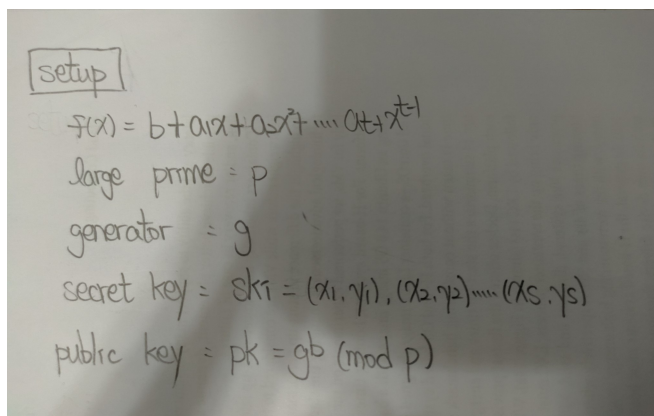 setup
f(x) = b+a₁x+a₂x²+....at-1x^t-1
large prime = p
generator = g
secret key = ski = (x₁,y₁), (x₂,y₂)..... (xs.ys)
public key = pk = gb (mod p)